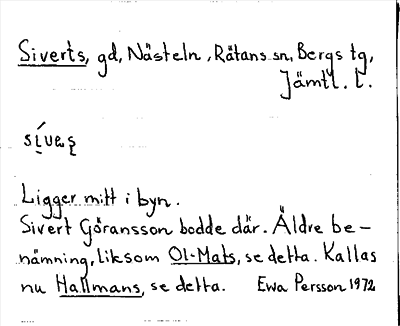 Siverts, gd, Nästeln, Råtans sn, Bergs tg,
Jämtl. l.
Ligger mitt i byn.
Sivert Göransson bodde där. Äldre be-
nämning, liksom Ol-Mats, se detta. Kallas
nu Hallmans, se detta. Ewa Persson 1972